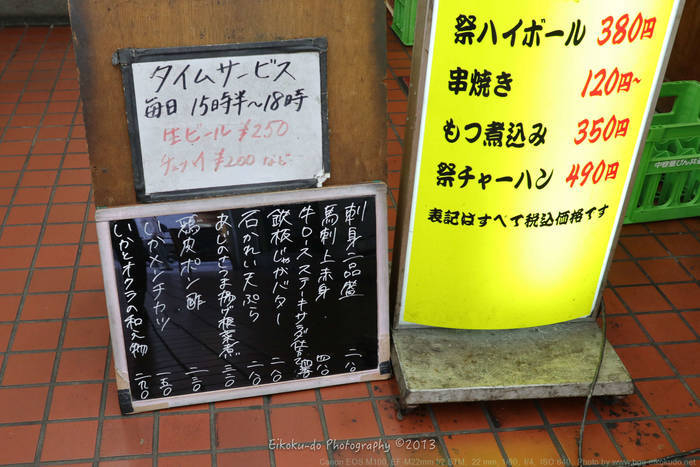 タイムサービス
毎日 15時半〜18時
生ビール ¥250
チューハイ ¥200 など
祭ハイボール 380円
串焼き 120円~
もつ煮込み 350円
祭チャーハン 490円
表記はすべて税込価格です
刺身二品盛 二八〇
馬刺上赤身 四八〇
牛ロースステーキサラダ仕立て 四八〇
鉄板じゃがバター 二八〇
石かれい天ぷら 二八〇
あじのさつま揚げ根菜煮 三三〇
鶏皮ポン酢 二三〇
いかメンチカツ 一五〇
いかとオクラの和え物 二九〇
Eikoku-do Photography ©2013